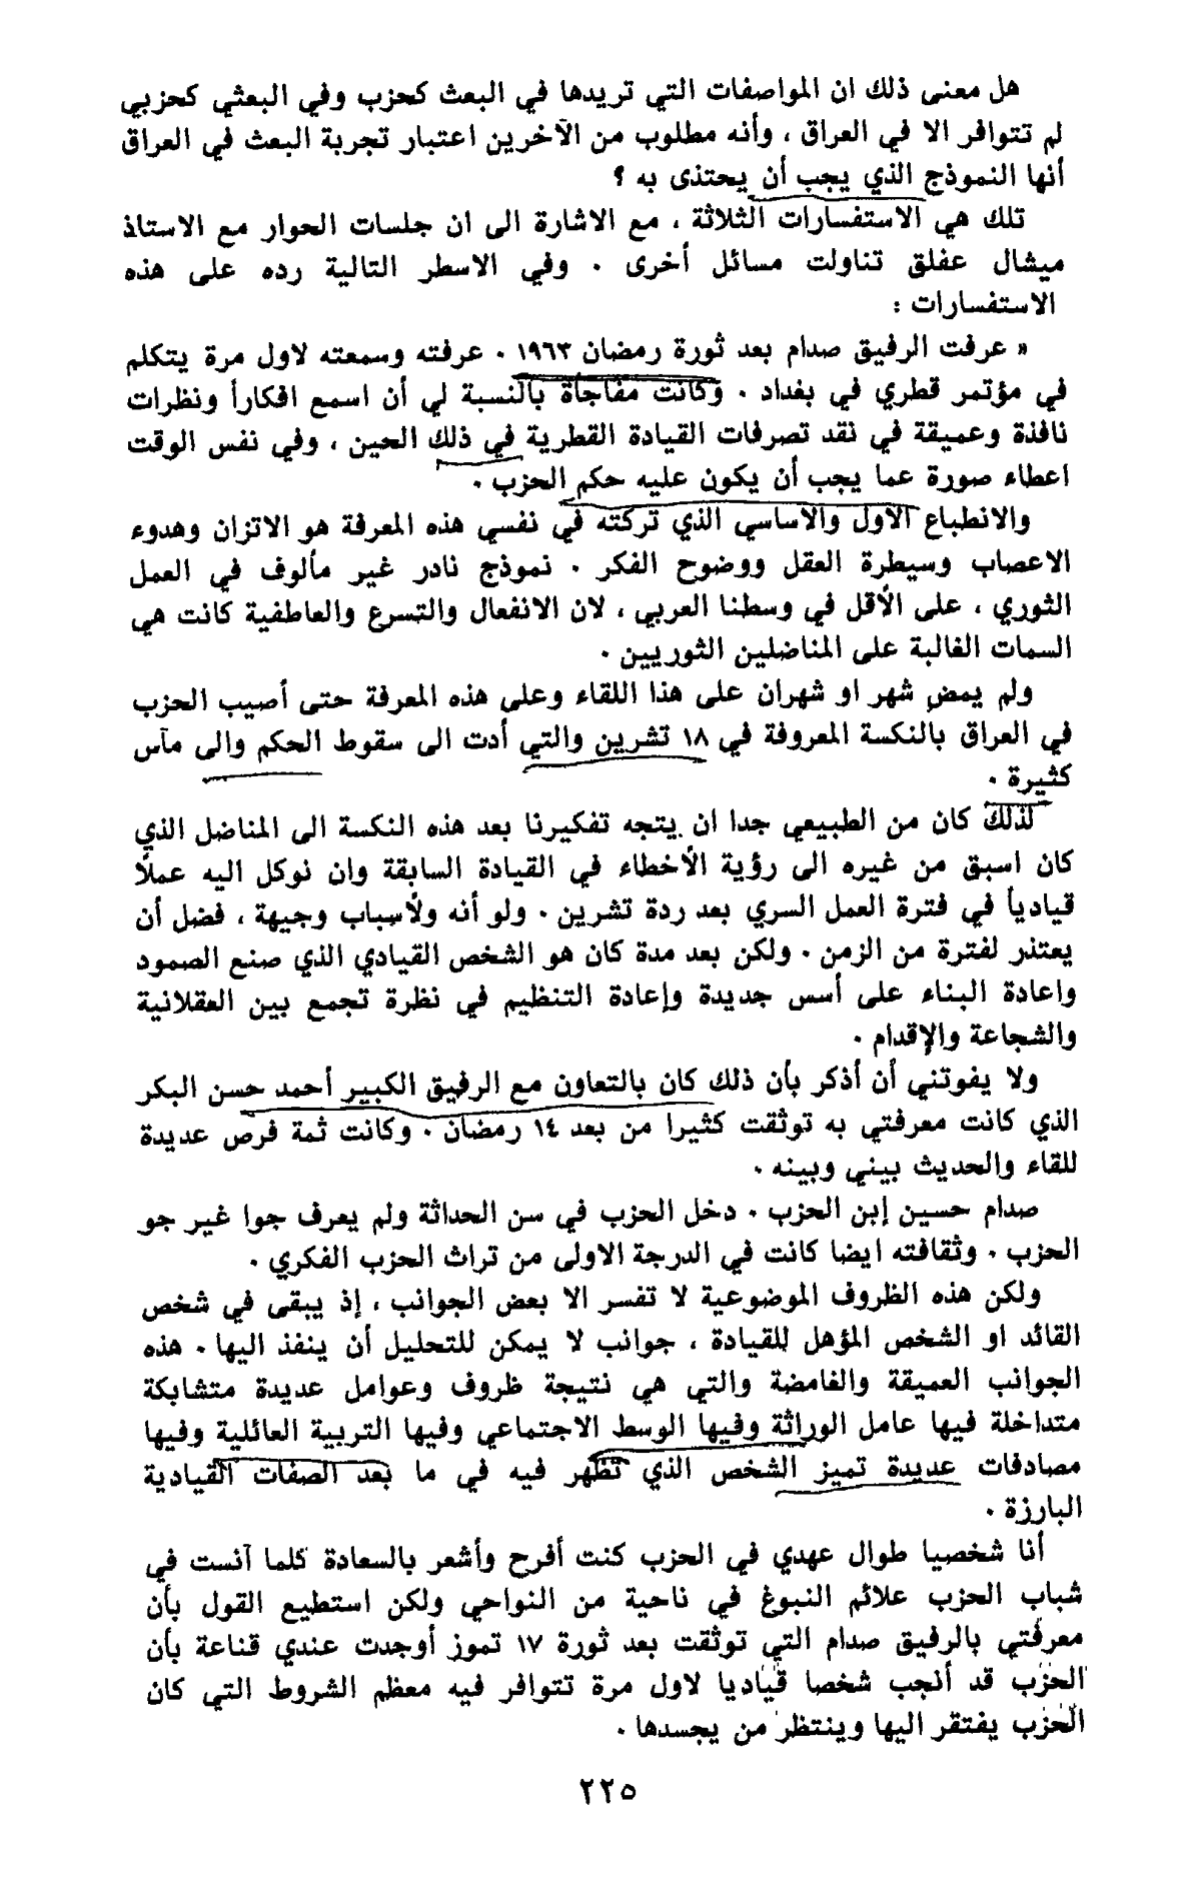 هل معنى ذلك ان المواصفات التي تريدها في البعث كحزب وفي البعثي كحزبي
لم تتوافر الا في العراق ، وأنه مطلوب من الآخرين اعتبار تجربة البعث في العراق
أنها النموذج الذي يجب أن يحتذى به ؟
تلك هي الاستفسارات الثلاثة ، مع الاشارة الى ان جلسات الحوار مع الاستاذ
ميشال عفلق تناولت مسائل أخرى . وفي الاسطر التالية رده على هذه
الاستفسارات :
« عرفت الرفيق صدام بعد ثورة رمضان ١٩٦٣ . عرفته وسمعته لاول مرة يتكلم
في مؤتمر قطري في بغداد . وكانت مفاجأة بالنسبة لي أن اسمع افكاراً ونظرات
نافذة وعميقة في نقد تصرفات القيادة القطرية في ذلك الحين ، وفي نفس الوقت
اعطاء صورة عما يجب أن يكون عليه حكم الحزب .
والانطباع الاول والاساسي الذي تركته في نفسي هذه المعرفة هو الاتزان وهدوء
الاعصاب وسيطرة العقل ووضوح الفكر . نموذج نادر غير مألوف في العمل
الثوري ، على الأقل في وسطنا العربي ، لان الانفعال والتسرع والعاطفية كانت هي
السمات الغالبة على المناضلين الثوريين .
ولم يمضِ شهر او شهران على هذا اللقاء وعلى هذه المعرفة حتى أصيب الحزب
في العراق بالنكسة المعروفة في ١٨ تشرين والتي أدت الى سقوط الحكم والى مآس
كثيرة .
لذلك كان من الطبيعي جدا ان يتجه تفكيرنا بعد هذه النكسة الى المناضل الذي
كان اسبق من غيره الى رؤية الأخطاء في القيادة السابقة وان نوكل اليه عملاً
قيادياً في فترة العمل السري بعد ردة تشرين . ولو أنه ولأسباب وجيهة ، فضل أن
يعتذر لفترة من الزمن . ولكن بعد مدة كان هو الشخص القيادي الذي صنع الصمود
واعادة البناء على أسس جديدة وإعادة التنظيم في نظرة تجمع بين العقلانية
والشجاعة والإقدام .
ولا يفوتني أن أذكر بأن ذلك كان بالتعاون مع الرفيق الكبير أحمد حسن البكر
الذي كانت معرفتي به توثقت كثيرا من بعد ١٤ رمضان . وكانت ثمة فرص عديدة
للقاء والحديث بيني وبينه .
صدام حسين إبن الحزب . دخل الحزب في سن الحداثة ولم يعرف جوا غير جو
الحزب . وثقافته ايضا كانت في الدرجة الاولى من تراث الحزب الفكري .
ولكن هذه الظروف الموضوعية لا تفسر الا بعض الجوانب ، إذ يبقى في شخص
القائد او الشخص المؤهل للقيادة ، جوانب لا يمكن للتحليل أن ينفذ اليها . هذه
الجوانب العميقة والغامضة والتي هي نتيجة ظروف وعوامل عديدة متشابكة
متداخلة فيها عامل الوراثة وفيها الوسط الاجتماعي وفيها التربية العائلية وفيها
مصادفات عديدة تميز الشخص الذي تظهر فيه في ما بعد الصفات القيادية
البارزة .
أنا شخصيا طوال عهدي في الحزب كنت أفرح وأشعر بالسعادة كلما آنست في
شباب الحزب علائم النبوغ في ناحية من النواحي ولكن استطيع القول بأن
معرفتي بالرفيق صدام التي توثقت بعد ثورة ١٧ تموز أوجدت عندي قناعة بأن
الحزب قد أنجب شخصا قياديا لاول مرة تتوافر فيه معظم الشروط التي كان
الحزب يفتقر اليها وينتظر من يجسدها .
٢٢٥